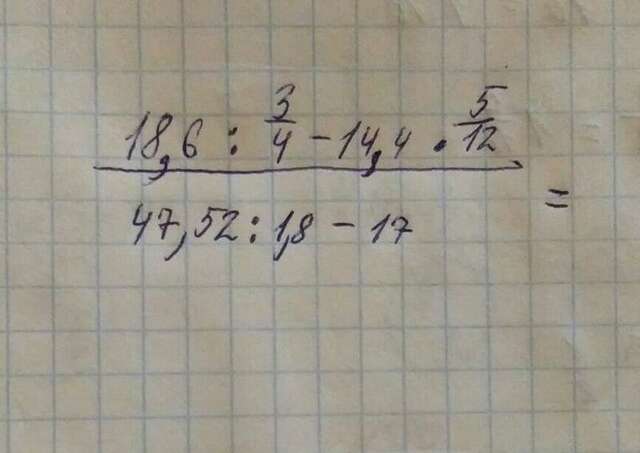 18,6 : 3/4 - 14,4 · 5/12
47,52 : 1,8 - 17 =